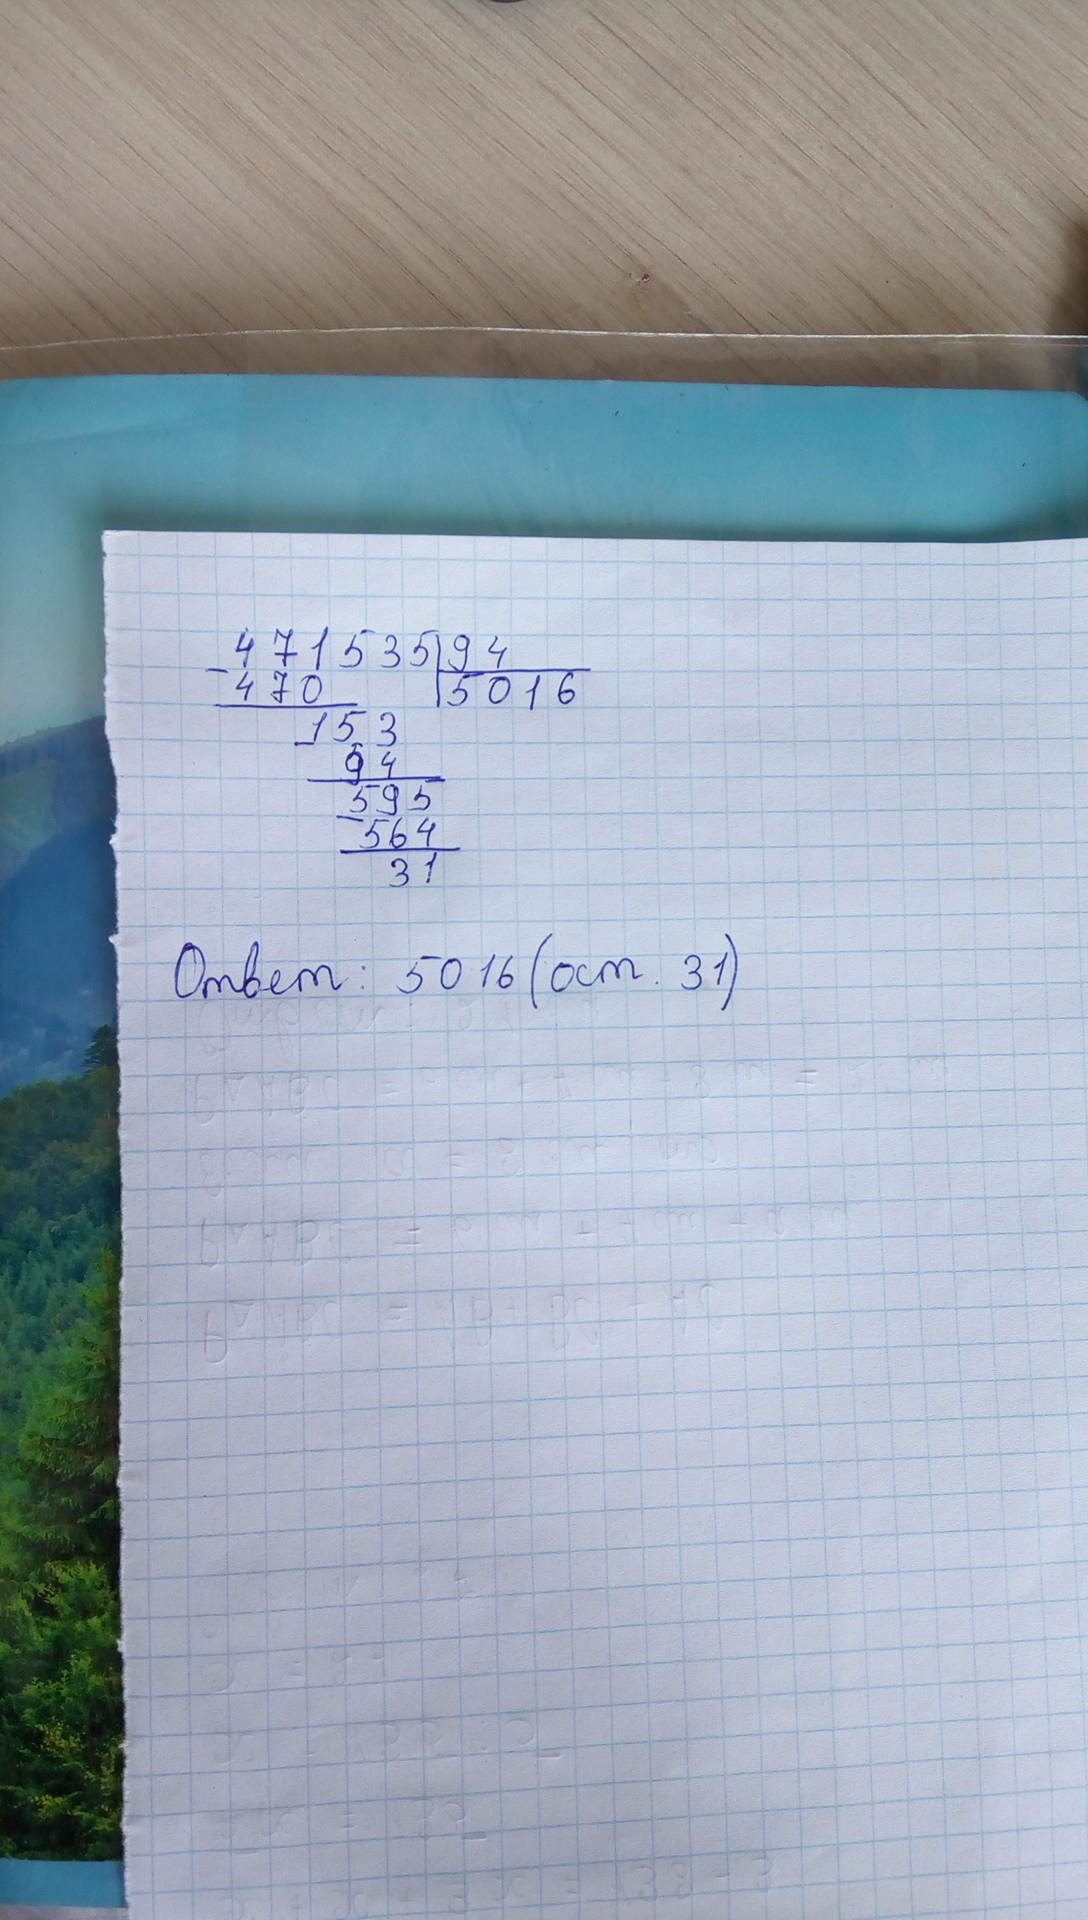 471535|94
- 470 |5016
- 153
94
- 595
564
31
Ответ: 5016 (ост. 31)